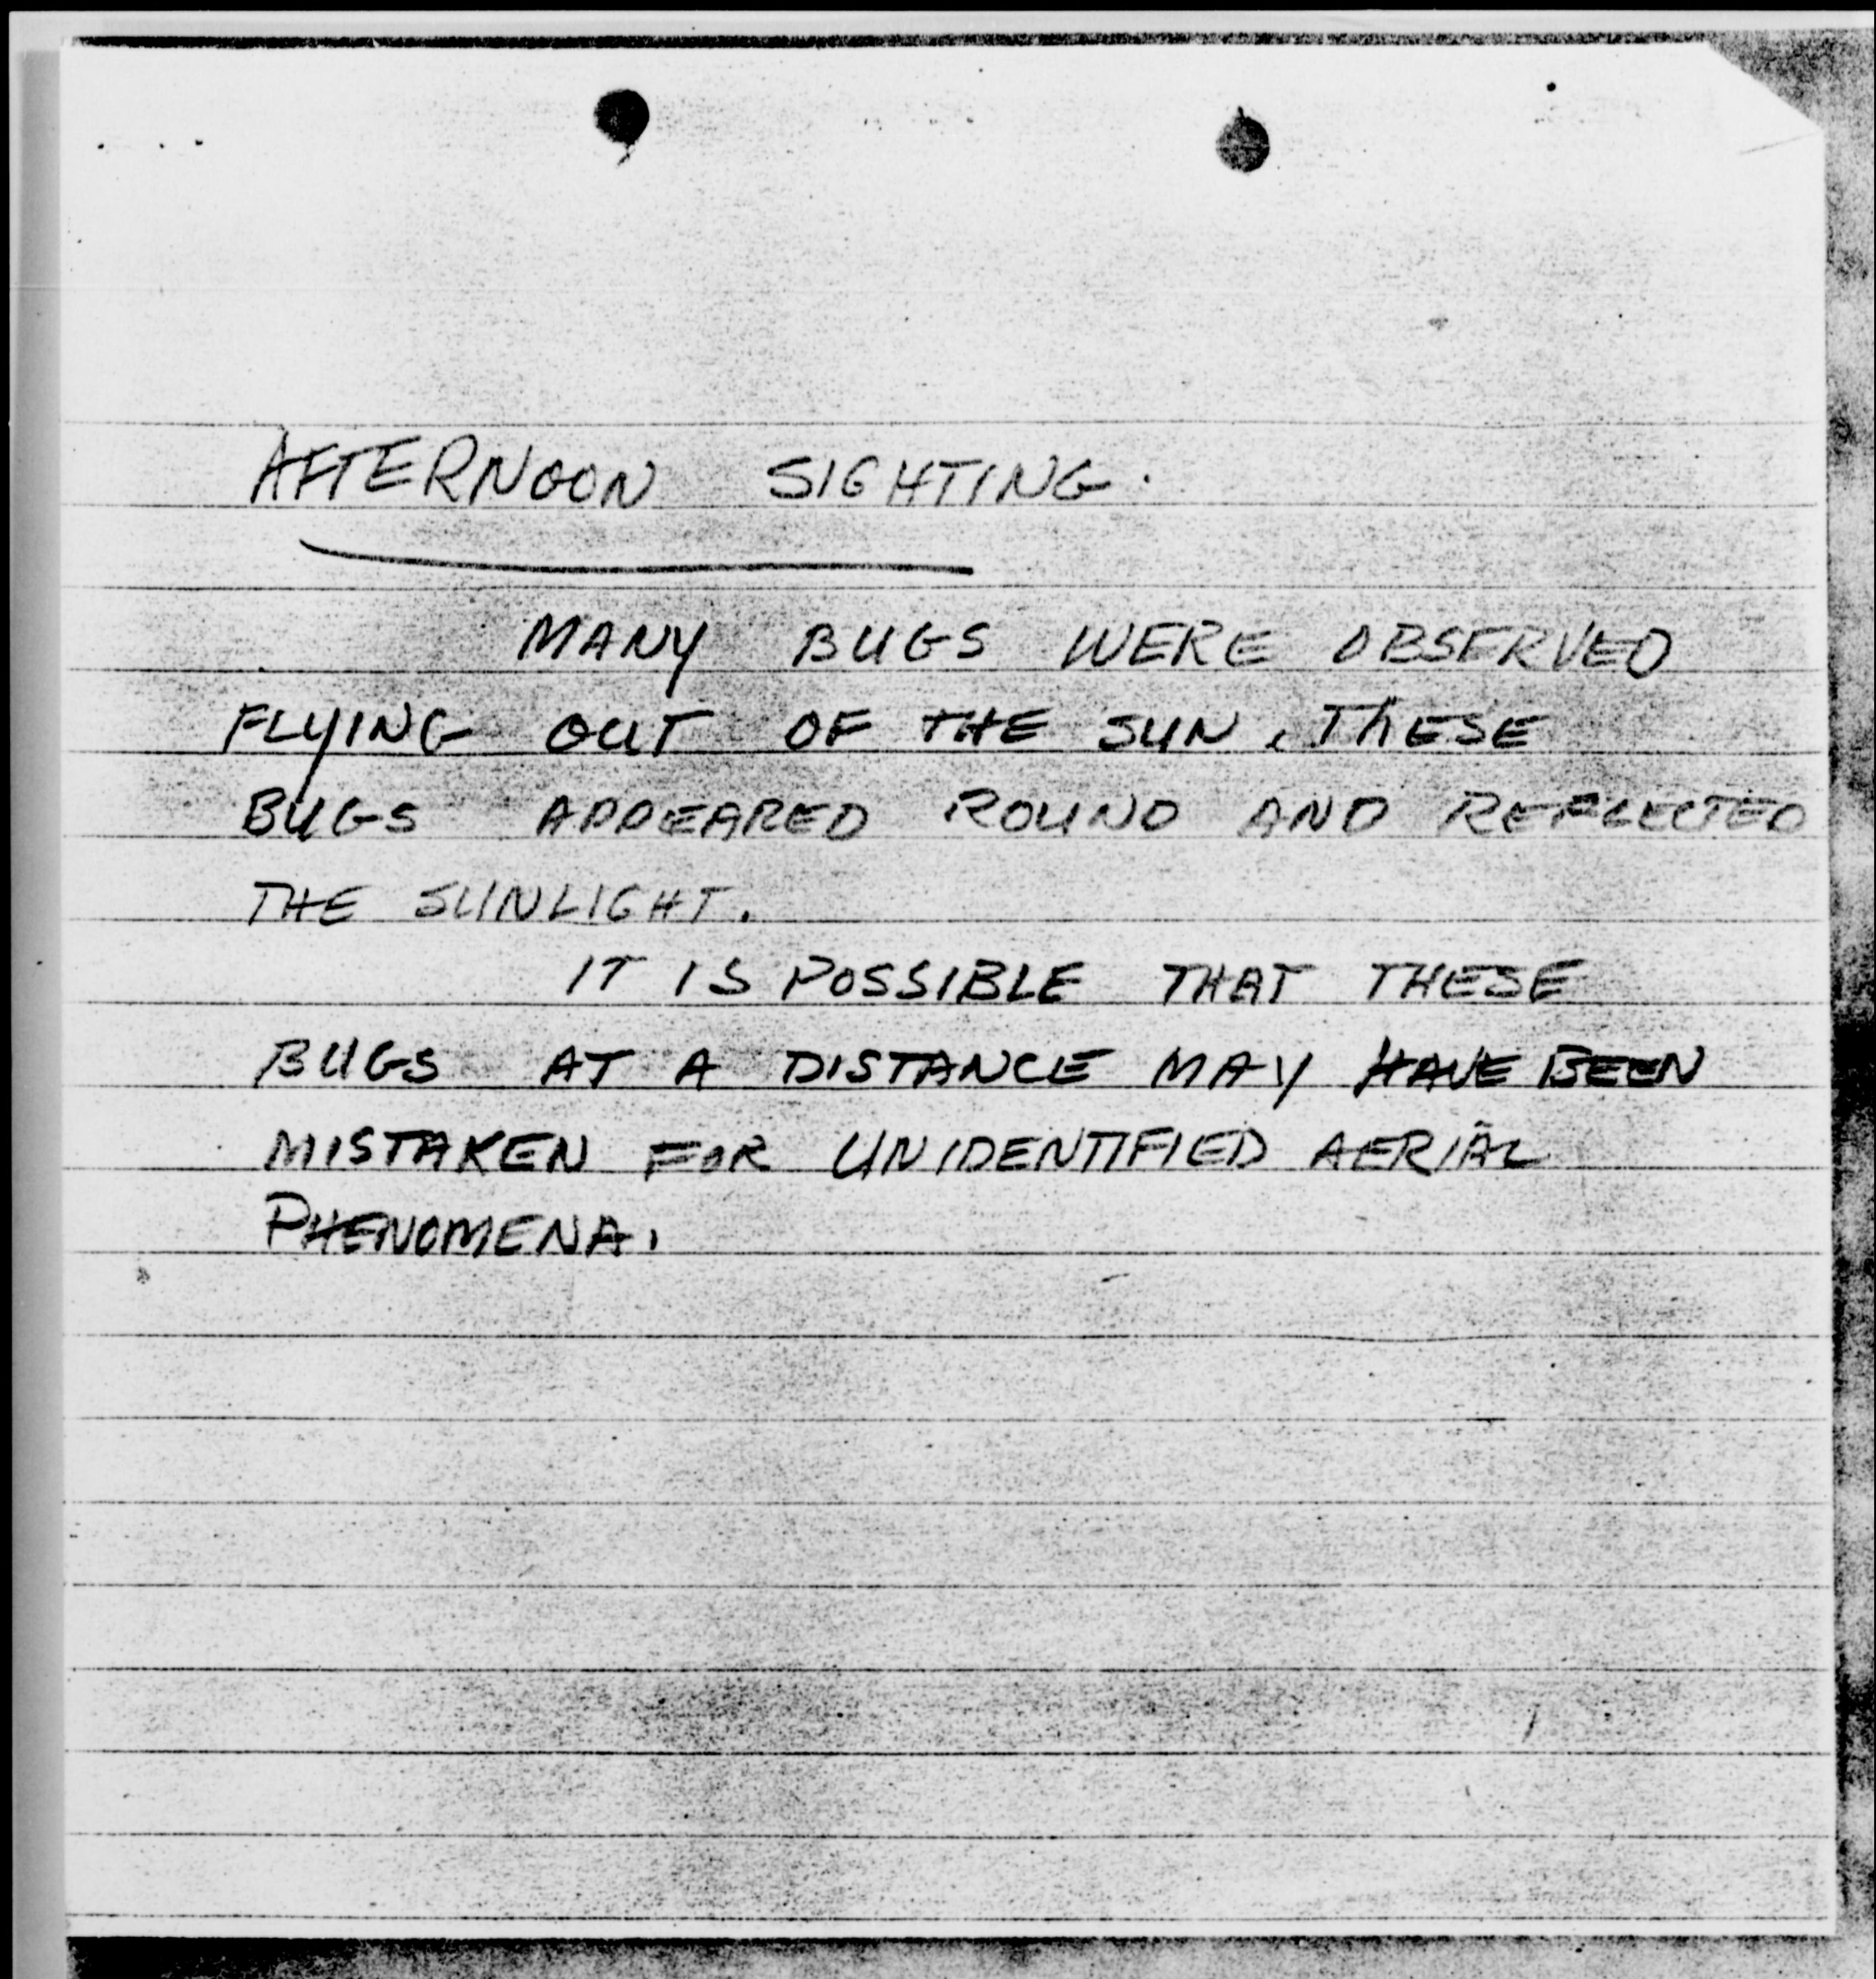 AFTERNOON SIGHTING.
MANY BUGS WERE OBSERVED
FLYING OUT OF THE SUN. THESE
BUGS APPEARED ROUND AND REFLECTED
THE SUNLIGHT.
IT IS POSSIBLE THAT THESE
BUGS AT A DISTANCE MAY HAVE BEEN
MISTAKEN FOR UNIDENTIFIED AERIAL
PHENOMENA.